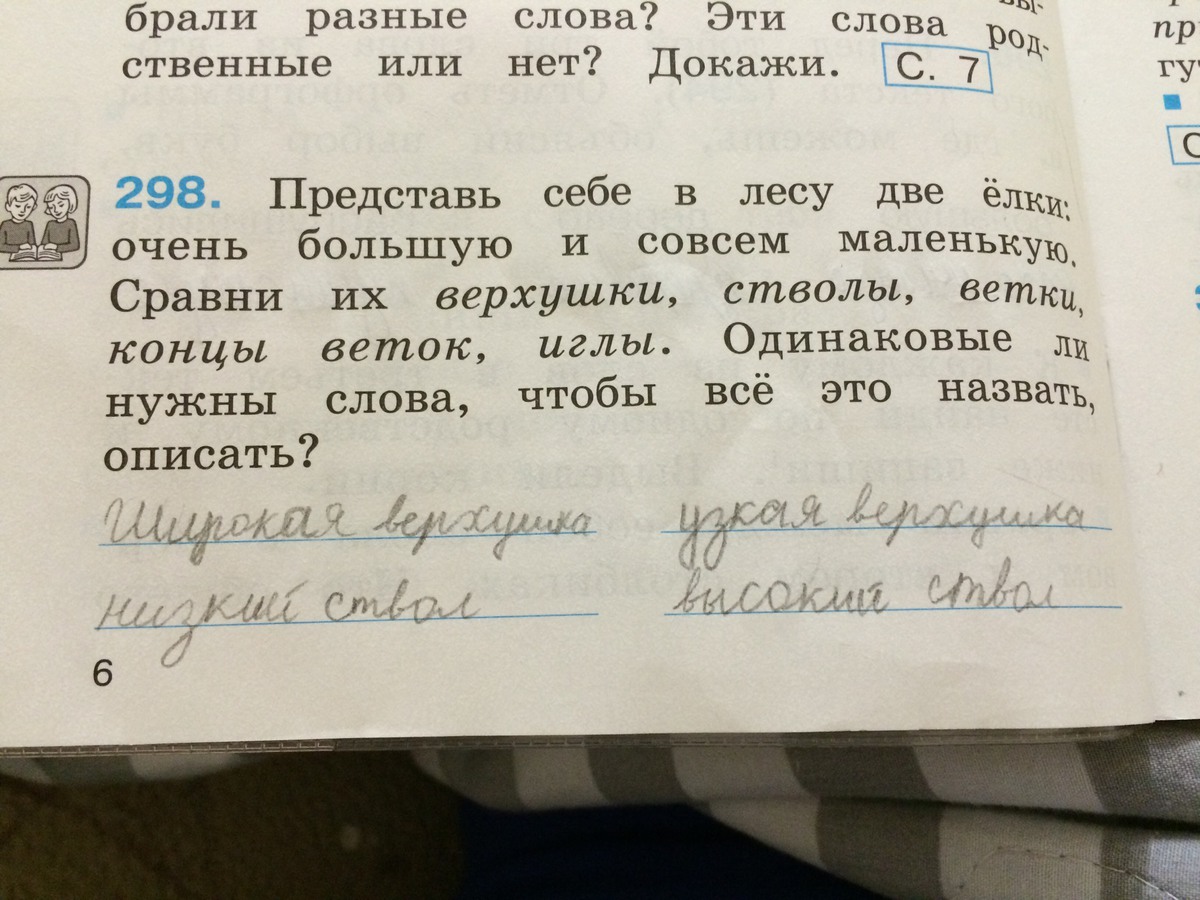 брали разные слова? Эти слова род-
ственные или нет? Докажи. С. 7
298. Представь себе в лесу две ёлки:
очень большую и совсем маленькую.
Сравни их верхушки, стволы, ветки,
концы веток, иглы. Одинаковые ли
нужны слова, чтобы всё это назвать,
описать?
Широкая верхушка узкая верхушка
низкий ствол высокий ствол
6